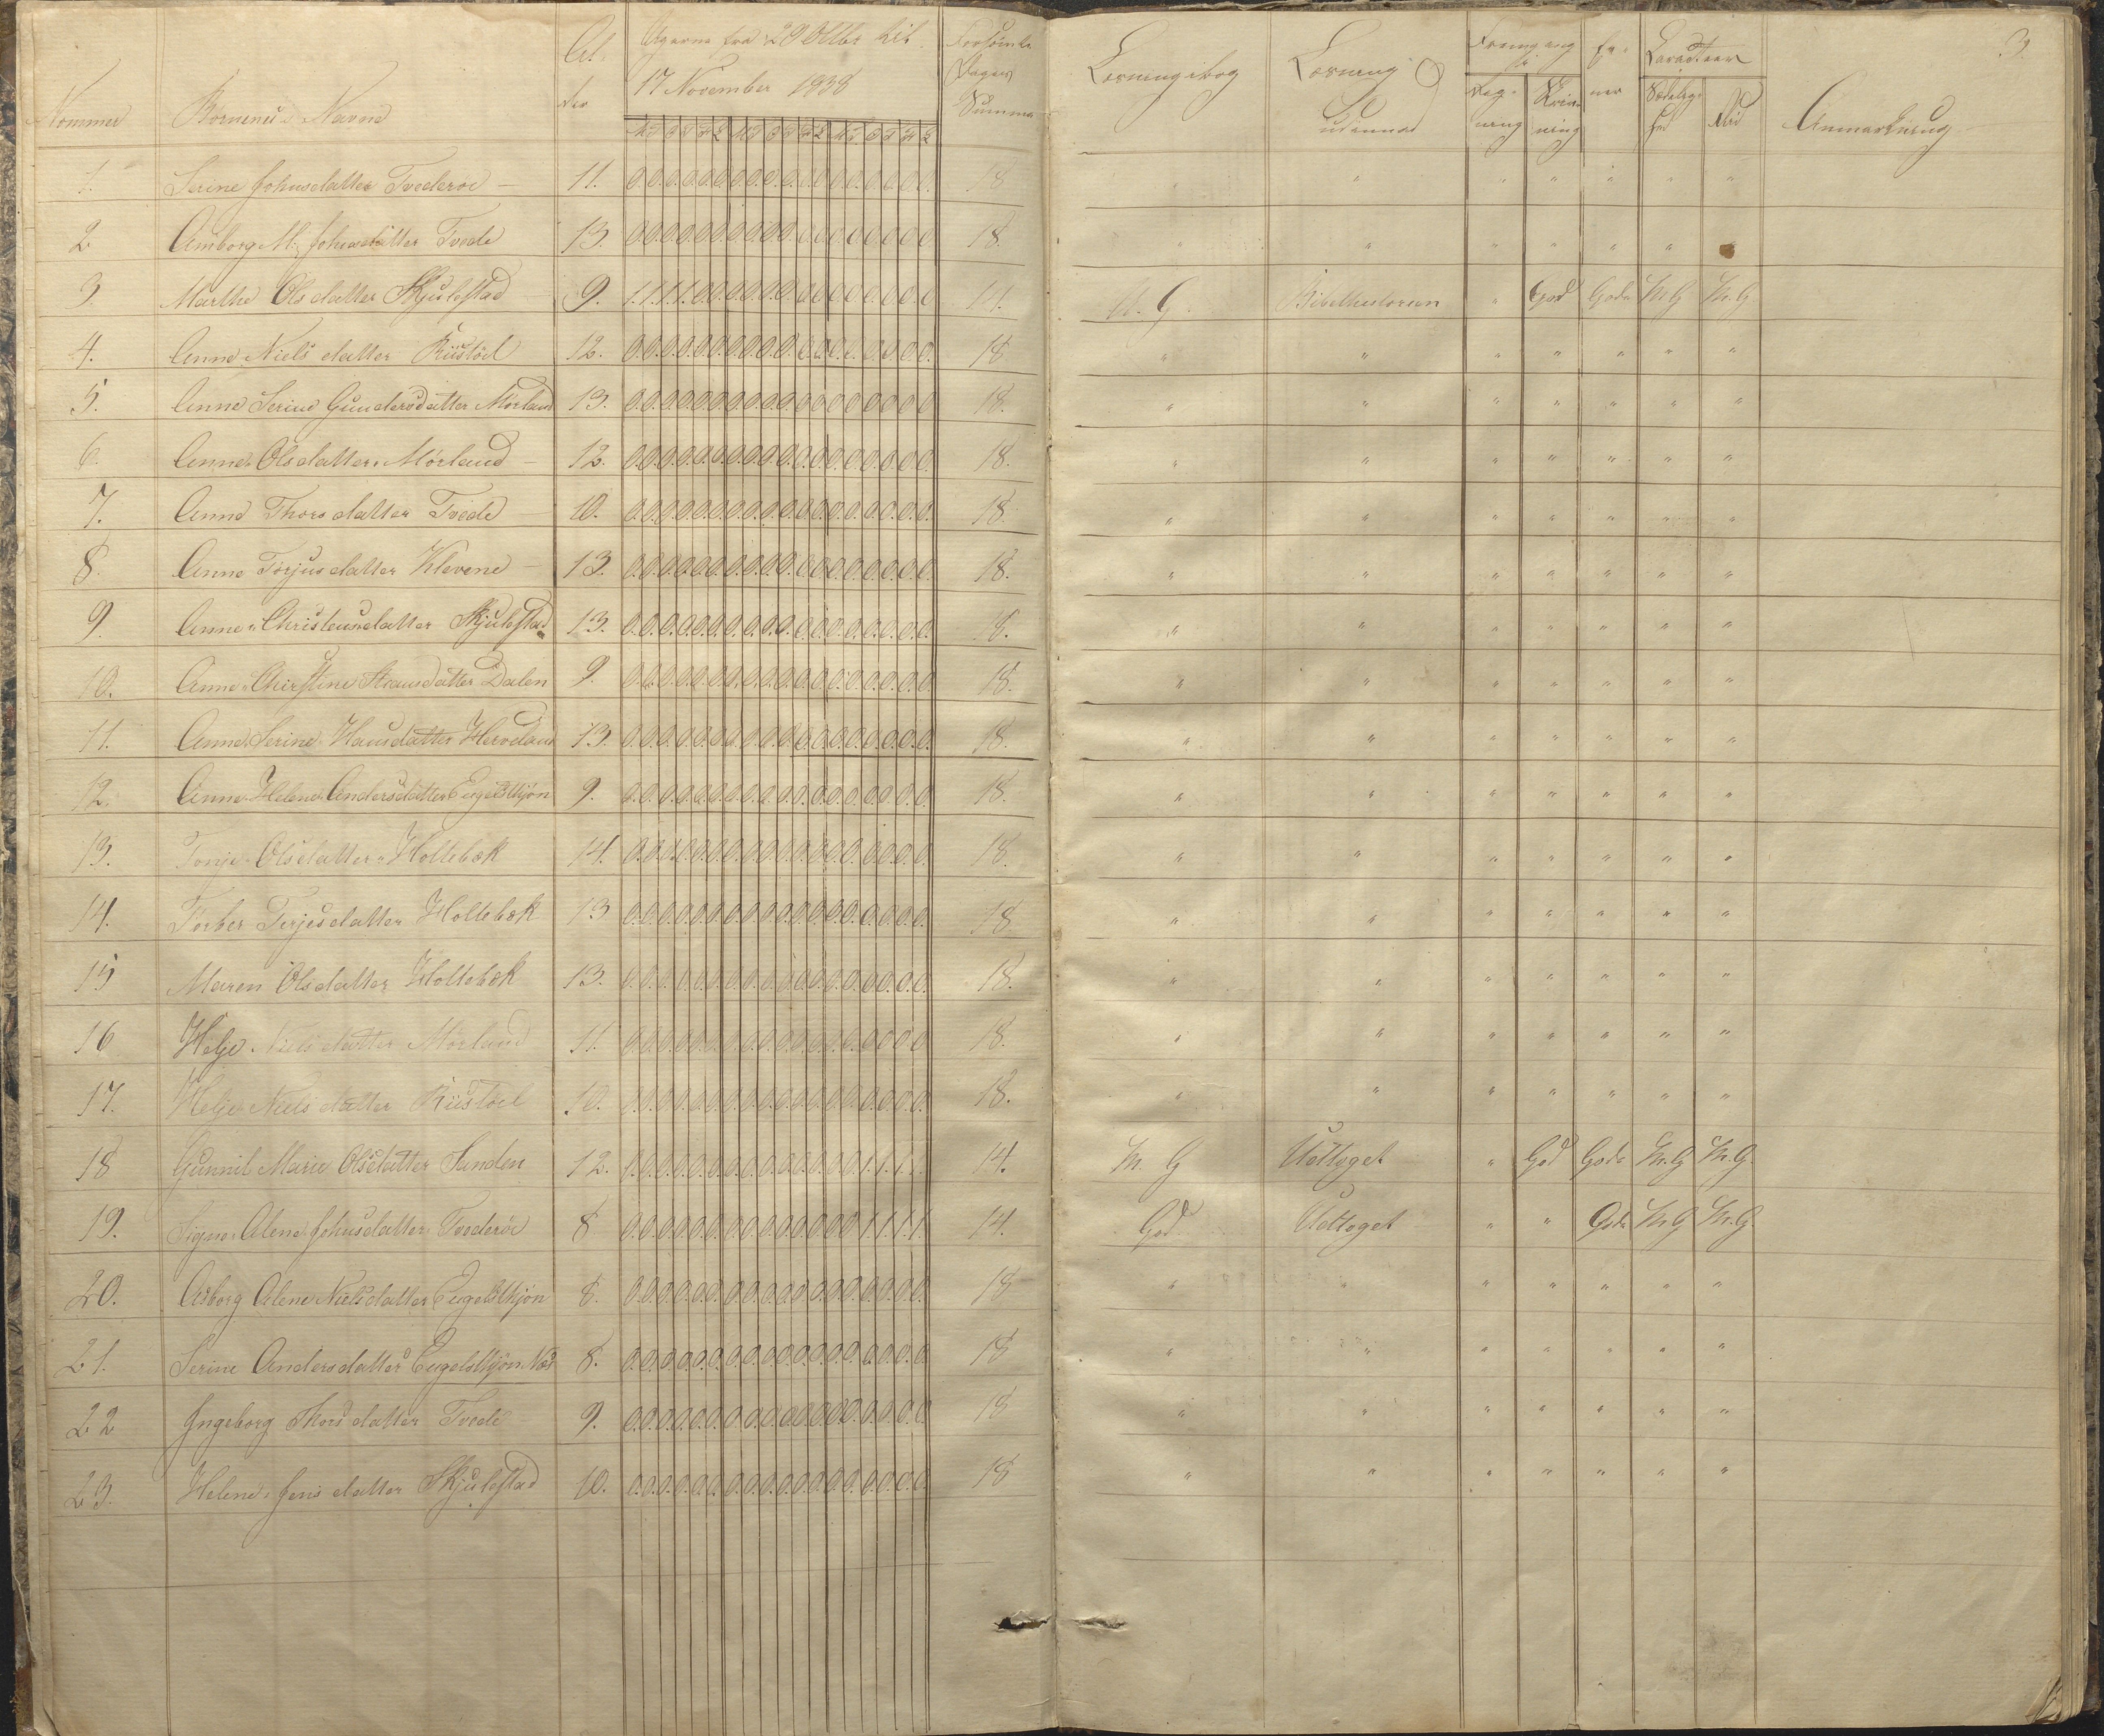 Nommer Børnenes Navne Al- der Ugerne fra 29 Octbr til 17 November 1838 Forsømte Dages Summa Læsning i bog Læsning udennad Fremgang i Reg- ning Skriv- ning Ev- ner Caracteer Sædelig- hed Flid Anmærkning 3.
M T O T F L M T O T F L M T O T F L
1. Serine Johnsdatter Tvederøe 11. 0.0.0.0.0.0.0.0.0.0.0.0.0.0.0.0.0.0. 18 " " " " " " "
2 Amborg M. Johnsdatter Tvede 13. 0.0.0.0.0.0.0.0.0.0.0.0.0.0.0.0.0.0 18. " " " " " "
3 Marthe Olsdatter Skjulestad 9. 1.1.1.1.0.0.0.0.0.0.0.0.0.0.0.0.0.0 14. M. G. Bibelhistorien " God Gode M.G M.G
4. Anne Nielsdatter Riistöel 12. 0.0.0.0.0.0.0.0.0.0.0.0.0.0.0.0.0.0. 18 " " " " " " "
5. Anne Serine Gundersdatter Mörland 13. 0.0.0.0.0.0.0.0.0.0.0.0.0.0.0.0.0.0 18. " " " " " " "
6. Anne Olsdatter Mörland 12. 0.0.0.0.0.0.0.0.0.0.0.0.0.0.0.0.0.0. 18. " " " " " " "
7. Anne Thorsdatter Tvede 10. 0.0.0.0.0.0.0.0.0.0.0.0.0.0.0.0.0.0. 18. " " " " " " "
8. Anne Torjusdatter Klevene 13. 0.0.0.0.0.0.0.0.0.0.0.0.0.0.0.0.0.0. 18. " " " " " " "
9. Anne Christensdatter Skjulestad 13. 0.0.0.0.0.0.0.0.0.0.0.0.0.0.0.0.0.0. 18. " " " " " " "
10. Anne Chirstine datter Dalen 9. 0.0.0.0.0.0.0.0.0.0.0.0.0.0.0.0.0.0. 18. " " " " " " "
11. Anne Serine Hansdatter Herveland 13. 0.0.0.0.0.0.0.0.0.0.0.0.0.0.0.0.0.0. 18. " " " " " " "
12. Anne Helene Andersdatter Engelskjön 9. 0.0.0.0.0.0.0.0.0.0.0.0.0.0.0.0.0.0. 18. " " " " " " "
13. Tonje Olsdatter Holtebæk 14. 0.0.0.0.0.0.0.0.0.0.0.0.0.0.0.0.0.0. 18. " " " " " " "
14. Torber Terjesdatter Holtebæk 13 0.0.0.0.0.0.0.0.0.0.0.0.0.0.0.0.0.0. 18 " " " " " " "
15 Maren Olsdatter Holtebæk 13. 0.0.0.0.0.0.0.0.0.0.0.0.0.0.0.0.0.0. 18. " " " " " " "
16 Helje Nielsdatter Mörland 11. 0.0.0.0.0.0.0.0.0.0.0.0.0.0.0.0.0.0 18. " " " " " " "
17. Helje Nielsdatter Riistöel 10. 0.0.0.0.0.0.0.0.0.0.0.0.0.0.0.0.0.0. 18. " " " " " " "
18 Gunnil Marie Olsdatter Sanden 12. 0.0.0.0.0.0.0.0.0.0.0.0.0.0.1.1.1.1. 14. M. G Udtoget " God Gode M.G M.G
19. Signe Alene Johnsdatter Tvederöe 8 0.0.0.0.0.0.0.0.0.0.0.0.0.0.1.1.1.1. 14. God Udtoget " " Gode M.G M.G.
20. Asborg Alene Nielsdatter Engelskjön 8. 0.0.0.0.0.0.0.0.0.0.0.0.0.0.0.0.0.0. 18 " " " " " " "
21. Serine Andersdatter Engelskjön 8. 0.0.0.0.0.0.0.0.0.0.0.0.0.0.0.0.0.0. 18 " " " " " " "
22 Ingeborg Thorsdatter Tvede 9. 0.0.0.0.0.0.0.0.0.0.0.0.0.0.0.0.0.0 18 " " " " " " "
23. Helene Jensdatter Skjulestad 10. 0.0.0.0.0.0.0.0.0.0.0.0.0.0.0.0.0.0. 18 " " " " " " "